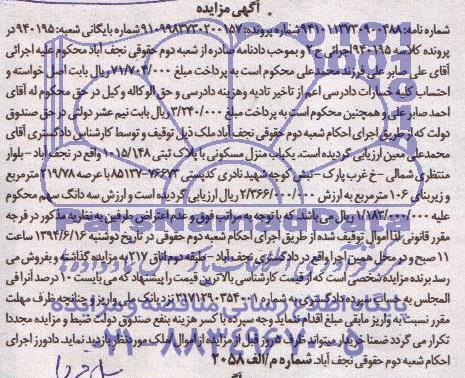 آگهی مزایده
شماره نامه: ۹۴۱۰۱۱۳۷۳۰۹۰۰۴۸۸ شماره پرونده: ۹۱۰۹۹۸۳۷۳۰۲۰۰۱۵۷ شماره بایگانی شعبه: ۹۴۰۱۹۵ در
پرونده کلاسه ۹۴۰۱۹۵ اجرائی ج ۲ و بموجب دادنامه صادره از شعبه دوم حقوقی نجف آباد محکوم علیه اجرائی
آقای علی صابر علی فرزند محمدعلی محکوم است به پرداخت مبلغ ۷۱/۷۰۴/۰۰۰ ریال بابت اصل خواسته و
احتساب کلیه خسارات دادرسی اعم از تاخیر تادیه وهزینه دادرسی و حق الوکاله وکیل در حق محکوم له آقای
احمد صابر علی و همچنین محکوم است به پرداخت مبلغ ۳/۲۴۰/۰۰۰ ریال بابت نیم عشر دولتی در حق صندوق
دولت که از طریق اجرای احکام شعبه دوم حقوقی نجف آباد ملک ذیل توقیف و توسط کارشناس دادگستری آقای
محمدعلی معین ارزیابی گردیده است. یکباب منزل مسکونی با پلاک ثبتی ۱۰۱۵/۱۴۸ واقع در نجف آباد - بلوار
منتظری شمالی - خ غرب پارک - نبش کوچه شهید نادری کدپستی ۷۶۶۷۳-۸۵۱۳۷ با عرصه ۲۱۹/۷۸ مترمربع
و زیربنای ۱۰۶ مترمربع به ارزش ۲/۳۶۶/۰۰۰/۰۰۰ ریال ارزیابی گردیده است و ارزش سه دانگ سهم محکوم
علیه ۱/۱۸۳/۰۰۰/۰۰۰ ریال می باشد. که با توجه به مراتب فوق و عدم اعتراض طرفین به نظریه مذکور در فرجه
مقرر قانونی لذا اموال توقیف شده از طریق اجرای احکام شعبه دوم حقوقی در تاریخ دوشنبه ۱۳۹۴/۶/۱۶ ساعت
۱۱ صبح و در محل همین اجرا واقع در دادگستری نجف آباد - طبقه دوم اتاق ۲۱۷ به مزایده گذاشته و بفروش می
رسد برنده مزایده شخصی است که از قیمت کارشناسی بالاترین قیمت را پیشنهاد که می بایست ۱۰ درصد آنرا فی
المجلس به حساب سپرده دادگستری به شماره ۲۱۷۱۲۹۰۳۵۴۰۰۱ نزد بانک ملی واریز و چنانچه ظرف مهلت
مقرر نسبت به واریز مابقی مبلغ اقدام ننماید وجه سپرده با کسر هزینه بنفع صندوق دولت ضبط و مزایده مجددا
تکرار می گردد ضمنا خریدار میتواند ظرف ۵ روز قبل از مزایده از اموال / ملک مورد نظر بازدید نماید. دادورز اجرای
احکام شعبه دوم حقوقی نجف آباد. شماره م/الف ۲۰۵۸
ParsNamadData
پایگاه اطلاع رسانی مناقصه و مزایده
۰۲۱-۸۸۳۴۹۶۷۰